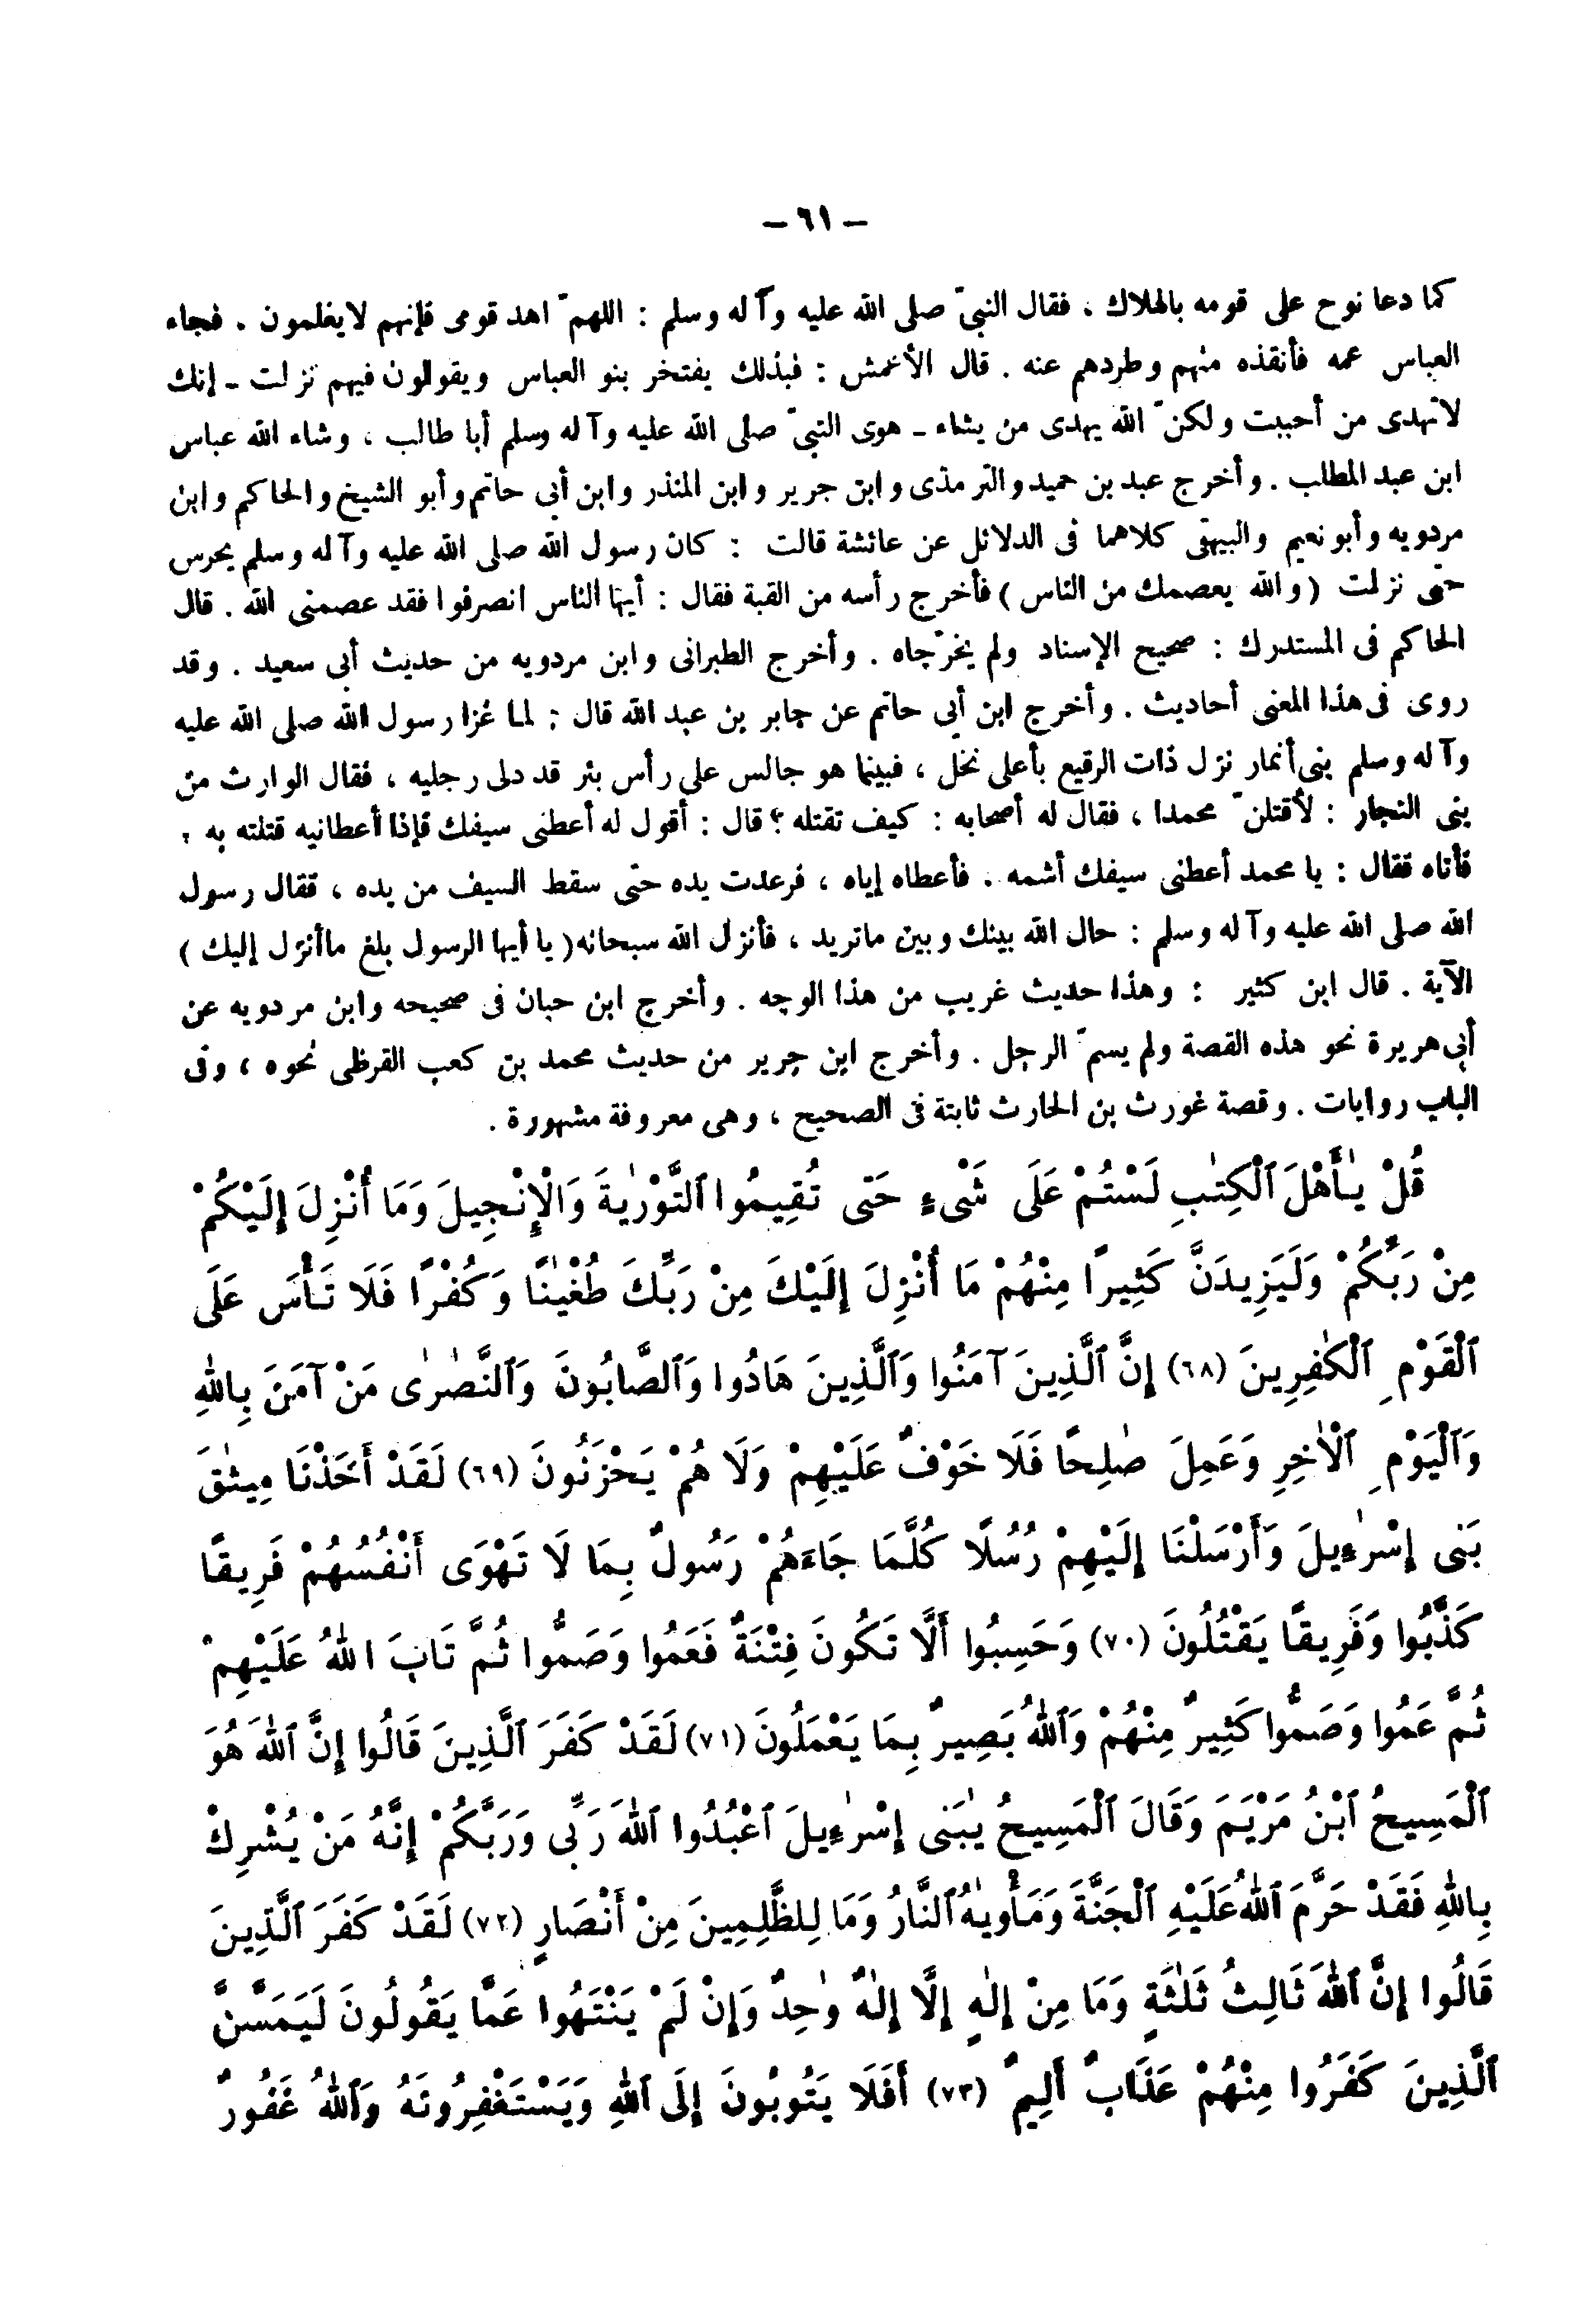 – ٦١ –
كما دعا نوح على قومه بالهلاك ، فقال النبىّ صلى الله عليه وآله وسلم : اللهمّ اهد قومى فإنهم لايعلمون . فجاء
العباس عمه فأنقذه منهم وطردهم عنه . قال الأعمش : فبذلك يفتخر بنو العباس ويقولون فيهم نزلت ـ إنك
لاتهدى من أحببت ولكنّ الله يهدى من يشاء ـ هوى النبىّ صلى الله عليه وآله وسلم أبا طالب ، وشاء الله عباس
ابن عبد المطلب . وأخرج عبد بن حميد والترمذى وابن جرير وابن المنذر وابن أبى حاتم وأبو الشيخ والحاكم وابن
مردويه وأبو نعيم والبيهقى كلاهما فى الدلائل عن عائشة قالت : كان رسول الله صلى الله عليه وآله وسلم يحرس
حتى نزلت ( والله يعصمك من الناس ) فأخرج رأسه من القبة فقال : أيها الناس انصرفوا فقد عصمنى الله . قال
الحاكم فى المستدرك : صحيح الإسناد ولم يخرّجاه . وأخرج الطبرانى وابن مردويه من حديث أبى سعيد . وقد
روى فى هذا المعنى أحاديث . وأخرج ابن أبى حاتم عن جابر بن عبد الله قال : لما غزا رسول الله صلى الله عليه
وآله وسلم بنى أنمار نزل ذات الرقيع بأعلى نخل ، فبينما هو جالس على رأس بئر قد دلى رجليه ، فقال الوارث من
بنى النجار : لأقتلنّ محمدا ، فقال له أصحابه : كيف تقتله ؟ قال : أقول له أعطنى سيفك فإذا أعطانيه قتلته به ،
فأتاه فقال : يا محمد أعطنى سيفك أشمه . فأعطاه إياه ، فرعدت يده حتى سقط السيف من يده ، فقال رسول
الله صلى الله عليه وآله وسلم : حال الله بينك وبين ماتريد ، فأنزل الله سبحانه ( يا أيها الرسول بلغ ماأنزل إليك )
الآية . قال ابن كثير : وهذا حديث غريب من هذا الوجه . وأخرج ابن حبان فى صحيحه وابن مردويه عن
أبى هريرة نحو هذه القصة ولم يسمّ الرجل . وأخرج ابن جرير من حديث محمد بن كعب القرظى نحوه ، وفى
الباب روايات . وقصة غورث بن الحارث ثابتة فى الصحيح ، وهى معروفة مشهورة .
قُلْ يٰأَهْلَ ٱلْكِتٰبِ لَسْتُمْ عَلَى شَىْءٍ حَتى تُقِيمُوا ٱلتَّوْرٰيةَ وَالْإِنْجِيلَ وَمَا أُنْزِلَ إِلَيْكُمْ
مِنْ رَبِّكُمْ وَلَيَزِيدَنَّ كَثِيرًا مِنْهُمْ مَا أُنْزِلَ إِلَيْكَ مِنْ رَبِّكَ طُغْيٰنًا وَكُفْرًا فَلَا تَأْسَ عَلَى
ٱلْقَوْمِ ٱلْكٰفِرِينَ (٦٨) إِنَّ ٱلَّذِينَ آمَنُوا وَٱلَّذِينَ هَادُوا وَٱلصَّابُونَ وَٱلنَّصٰرٰى مَنْ آمَنَ بِاللهِ
وَٱلْيَوْمِ ٱلْأٰخِرِ وَعَمِلَ صٰلِحًا فَلَا خَوْفٌ عَلَيْهِمْ وَلَا هُمْ يَحْزَنُونَ (٦٩) لَقَدْ أَخَذْنَا مِيثٰقَ
بَنِى إِسْرٰءِيلَ وَأَرْسَلْنَا إِلَيْهِمْ رُسُلًا كُلَّمَا جَاءَهُمْ رَسُولٌ بِمَا لَا تَهْوَى أَنْفُسُهُمْ فَرِيقًا
كَذَّبُوا وَفَرِيقًا يَقْتُلُونَ (٧٠) وَحَسِبُوا أَلَّا تَكُونَ فِتْنَةٌ فَعَمُوا وَصَمُّوا ثُمَّ تَابَ اللهُ عَلَيْهِمْ
ثُمَّ عَمُوا وَصَمُّوا كَثِيرٌ مِنْهُمْ وَٱللهُ بَصِيرٌ بِمَا يَعْمَلُونَ (٧١) لَقَدْ كَفَرَ ٱلَّذِينَ قَالُوا إِنَّ ٱللهَ هُوَ
ٱلْمَسِيحُ ٱبْنُ مَرْيَمَ وَقَالَ ٱلْمَسِيحُ يٰبَنِى إِسْرٰءِيلَ ٱعْبُدُوا ٱللهَ رَبِّى وَرَبَّكُمْ إِنَّهُ مَنْ يُشْرِكْ
بِاللهِ فَقَدْ حَرَّمَ ٱللهُ عَلَيْهِ ٱلْجَنَّةَ وَمَأْوٰيهُ ٱلنَّارُ وَمَا لِلظّٰلِمِينَ مِنْ أَنْصَارٍ (٧٢) لَقَدْ كَفَرَ ٱلَّذِينَ
قَالُوا إِنَّ ٱللهَ ثَالِثُ ثَلٰثَةٍ وَمَا مِنْ إِلٰهٍ إِلَّا إِلٰهٌ وٰحِدٌ وَإِنْ لَمْ يَنْتَهُوا عَمَّا يَقُولُونَ لَيَمَسَّنَّ
ٱلَّذِينَ كَفَرُوا مِنْهُمْ عَذَابٌ أَلِيمٌ (٧٣) أَفَلَا يَتُوبُونَ إِلَى ٱللهِ وَيَسْتَغْفِرُونَهُ وَٱللهُ غَفُورٌ